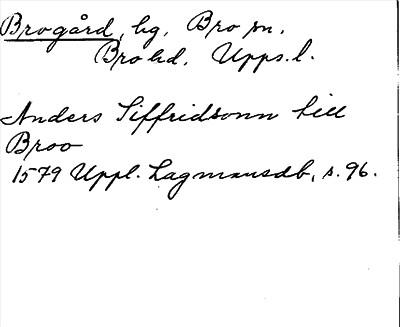 Brogård, hg, Bro sn,
Bro hd, Upps. l.
Anders Siffridsonn till
Broo
1579 Uppl. Lagmansdb, s. 96.